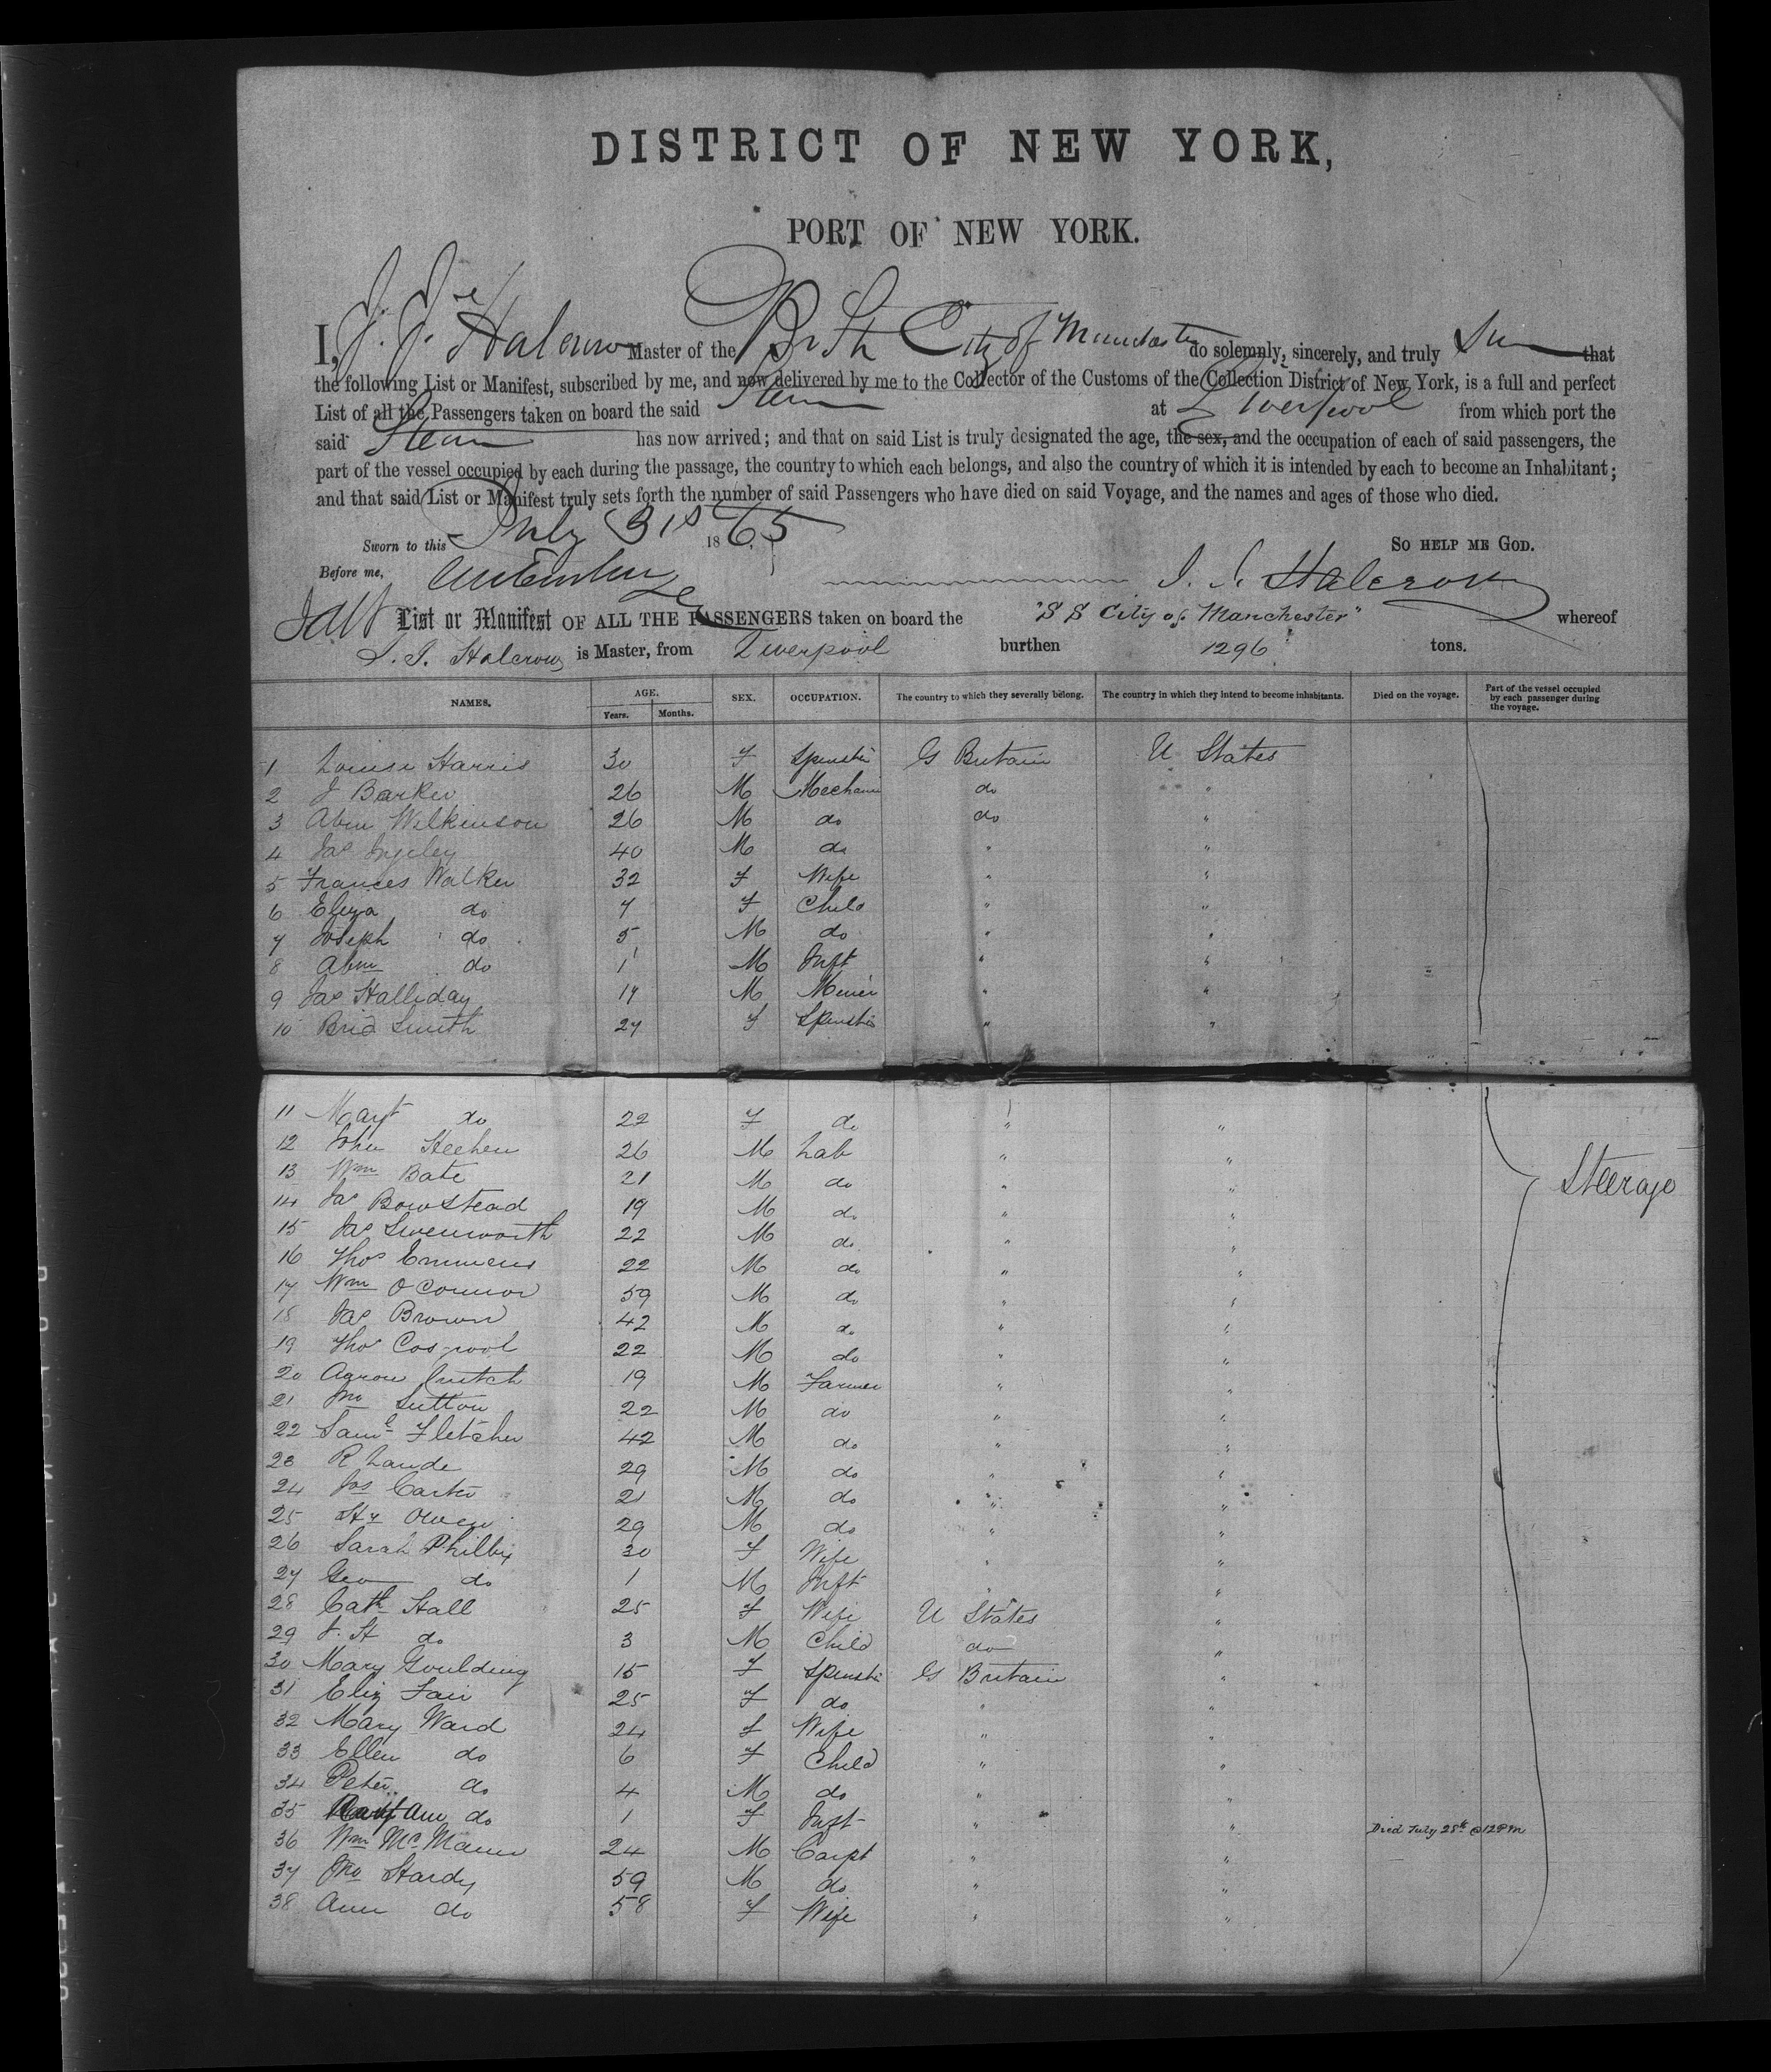 DISTRICT OF NEW YORK,
PORT OF NEW YORK.
I, J. J. Halcrow Master of the Br St City of Manchester do solemnly, sincerely, and truly that
the following List or Manifest, subscribed by me, and now delivered by me to the Collector of the Customs of the Collection District of New York, is a full and perfect
List of all the Passengers taken on board the said Steam at Liverpool from which port the
said Steam has now arrived; and that on said List is truly designated the age, the sex, and the occupation of each of said passengers, the
part of the vessel occupied by each during the passage, the country to which each belongs, and also the country of which it is intended by each to become an Inhabitant;
and that said List or Manifest truly sets forth the number of said Passengers who have died on said Voyage, and the names and ages of those who died.
Sworn to this July 31st 1865
So help me God.
Before me, J. J. Halcrow
List or Manifest OF ALL THE PASSENGERS taken on board the "S S City of Manchester" whereof
J. J. Halcrow is Master, from Liverpool burthen 1296 tons.
NAMES. AGE. Years. Months. SEX. OCCUPATION. The country to which they severally belong. The country in which they intend to become inhabitants. Died on the voyage. Part of the vessel occupied by each passenger during the voyage.
1 Louisa Harris 30 F Spinster G Britain U States
2 J Barker 26 M Mechanic do "
3 Abm Wilkinson 26 M do do "
4 Jas 40 M do " "
5 Frances Walker 32 F Wife " "
6 Eliza do 7 F Child " "
7 Joseph do 5 M do " "
8 Abm do 1 M Inft " "
9 Jas Halliday 17 M Miner " "
10 Brid Smith 27 F Spinster " "
11 Margt do 22 F do " "
12 John Heehen 26 M Lab " "
13 Wm Bate 21 M do " "
14 Jas Bowstead 19 M do " "
15 Jas Swenworth 22 M do " "
16 Thos Emmens 22 M do " "
17 Wm O'Connor 59 M do " "
18 Jas Brown 42 M do " "
19 Thos 22 M do " "
20 Aaron 19 M Farmer " "
21 Jno Sutton 22 M do " "
22 Saml Fletcher 42 M do " "
23 R Lande 29 M do " "
24 Jos Carter 21 M do " "
25 Hy Owen 29 M do " "
26 Sarah Philby 30 F Wife " "
27 Geo do 1 M Inft " "
28 Cath Hall 25 F Wife U States "
29 J. H do 3 M Child do "
30 Mary Goulding 15 F Spinster G Britain "
31 Eliz Fair 25 F do " "
32 Mary Ward 24 F Wife " "
33 Ellen do 6 F Child " "
34 Peter do 4 M do " "
35 Ann do 1 F Inft " " Died July 28th @ 12 PM
36 Wm McManus 24 M Carpt " "
37 Jno Hardy 59 M do " "
38 Ann do 58 F Wife " "
Steerage